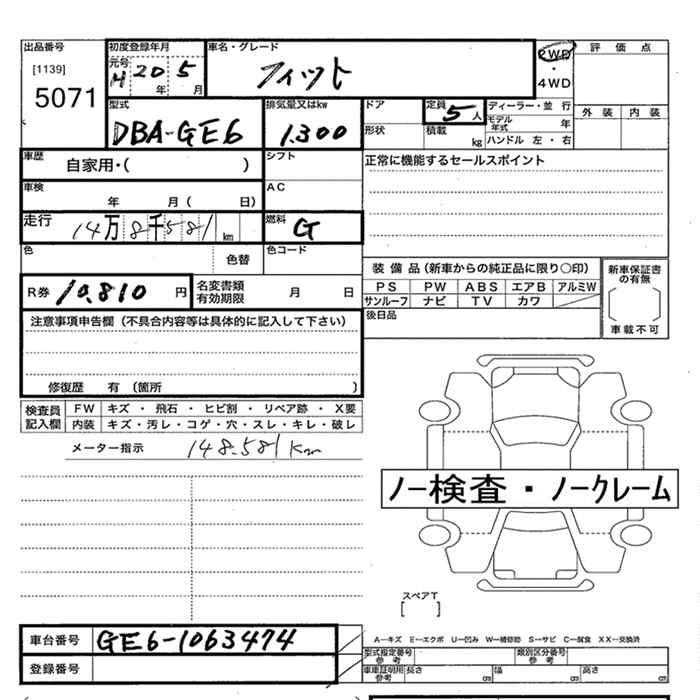 出品番号
[1139]
5071
初度登録年月
元号
H 20 年 5 月
車名・グレード
フィット
2WD
・
4WD
評価点
外装 内装
型式
DBA-GE6
排気量又はkw
1.300
ドア
形状
定員
5 人
積載 kg
ディーラー・並行
モデル年式 年
ハンドル 左・右
車歴
自家用・( )
シフト
正常に機能するセールスポイント
車検
年 月( 日)
AC
走行
14万8千581km
燃料
G
色
色替
色コード
R券 10.810 円
名変書類
有効期限 月 日
装備品(新車からの純正品に限り○印)
PS PW ABS エアB アルミW
サンルーフ ナビ TV カワ
後日品
新車保証書
の有無
車載不可
注意事項申告欄(不具合内容等は具体的に記入して下さい)
修復歴 有(箇所 )
検査員
記入欄
FW キズ・飛石・ヒビ割・リペア跡・X要
内装 キズ・汚レ・コゲ・穴・スレ・キレ・破レ
メーター指示 148.581Km
ノー検査・ノークレーム
スペアT
[ ]
車台番号 GE6-1063474
登録番号
A-キズ E-エクボ U-凹み W-補修跡 S-サビ C-腐食 XX-交換済
型式指定番号
参考
類別区分番号
参考
車庫証明用
参考
長さ cm 幅 cm 高さ cm